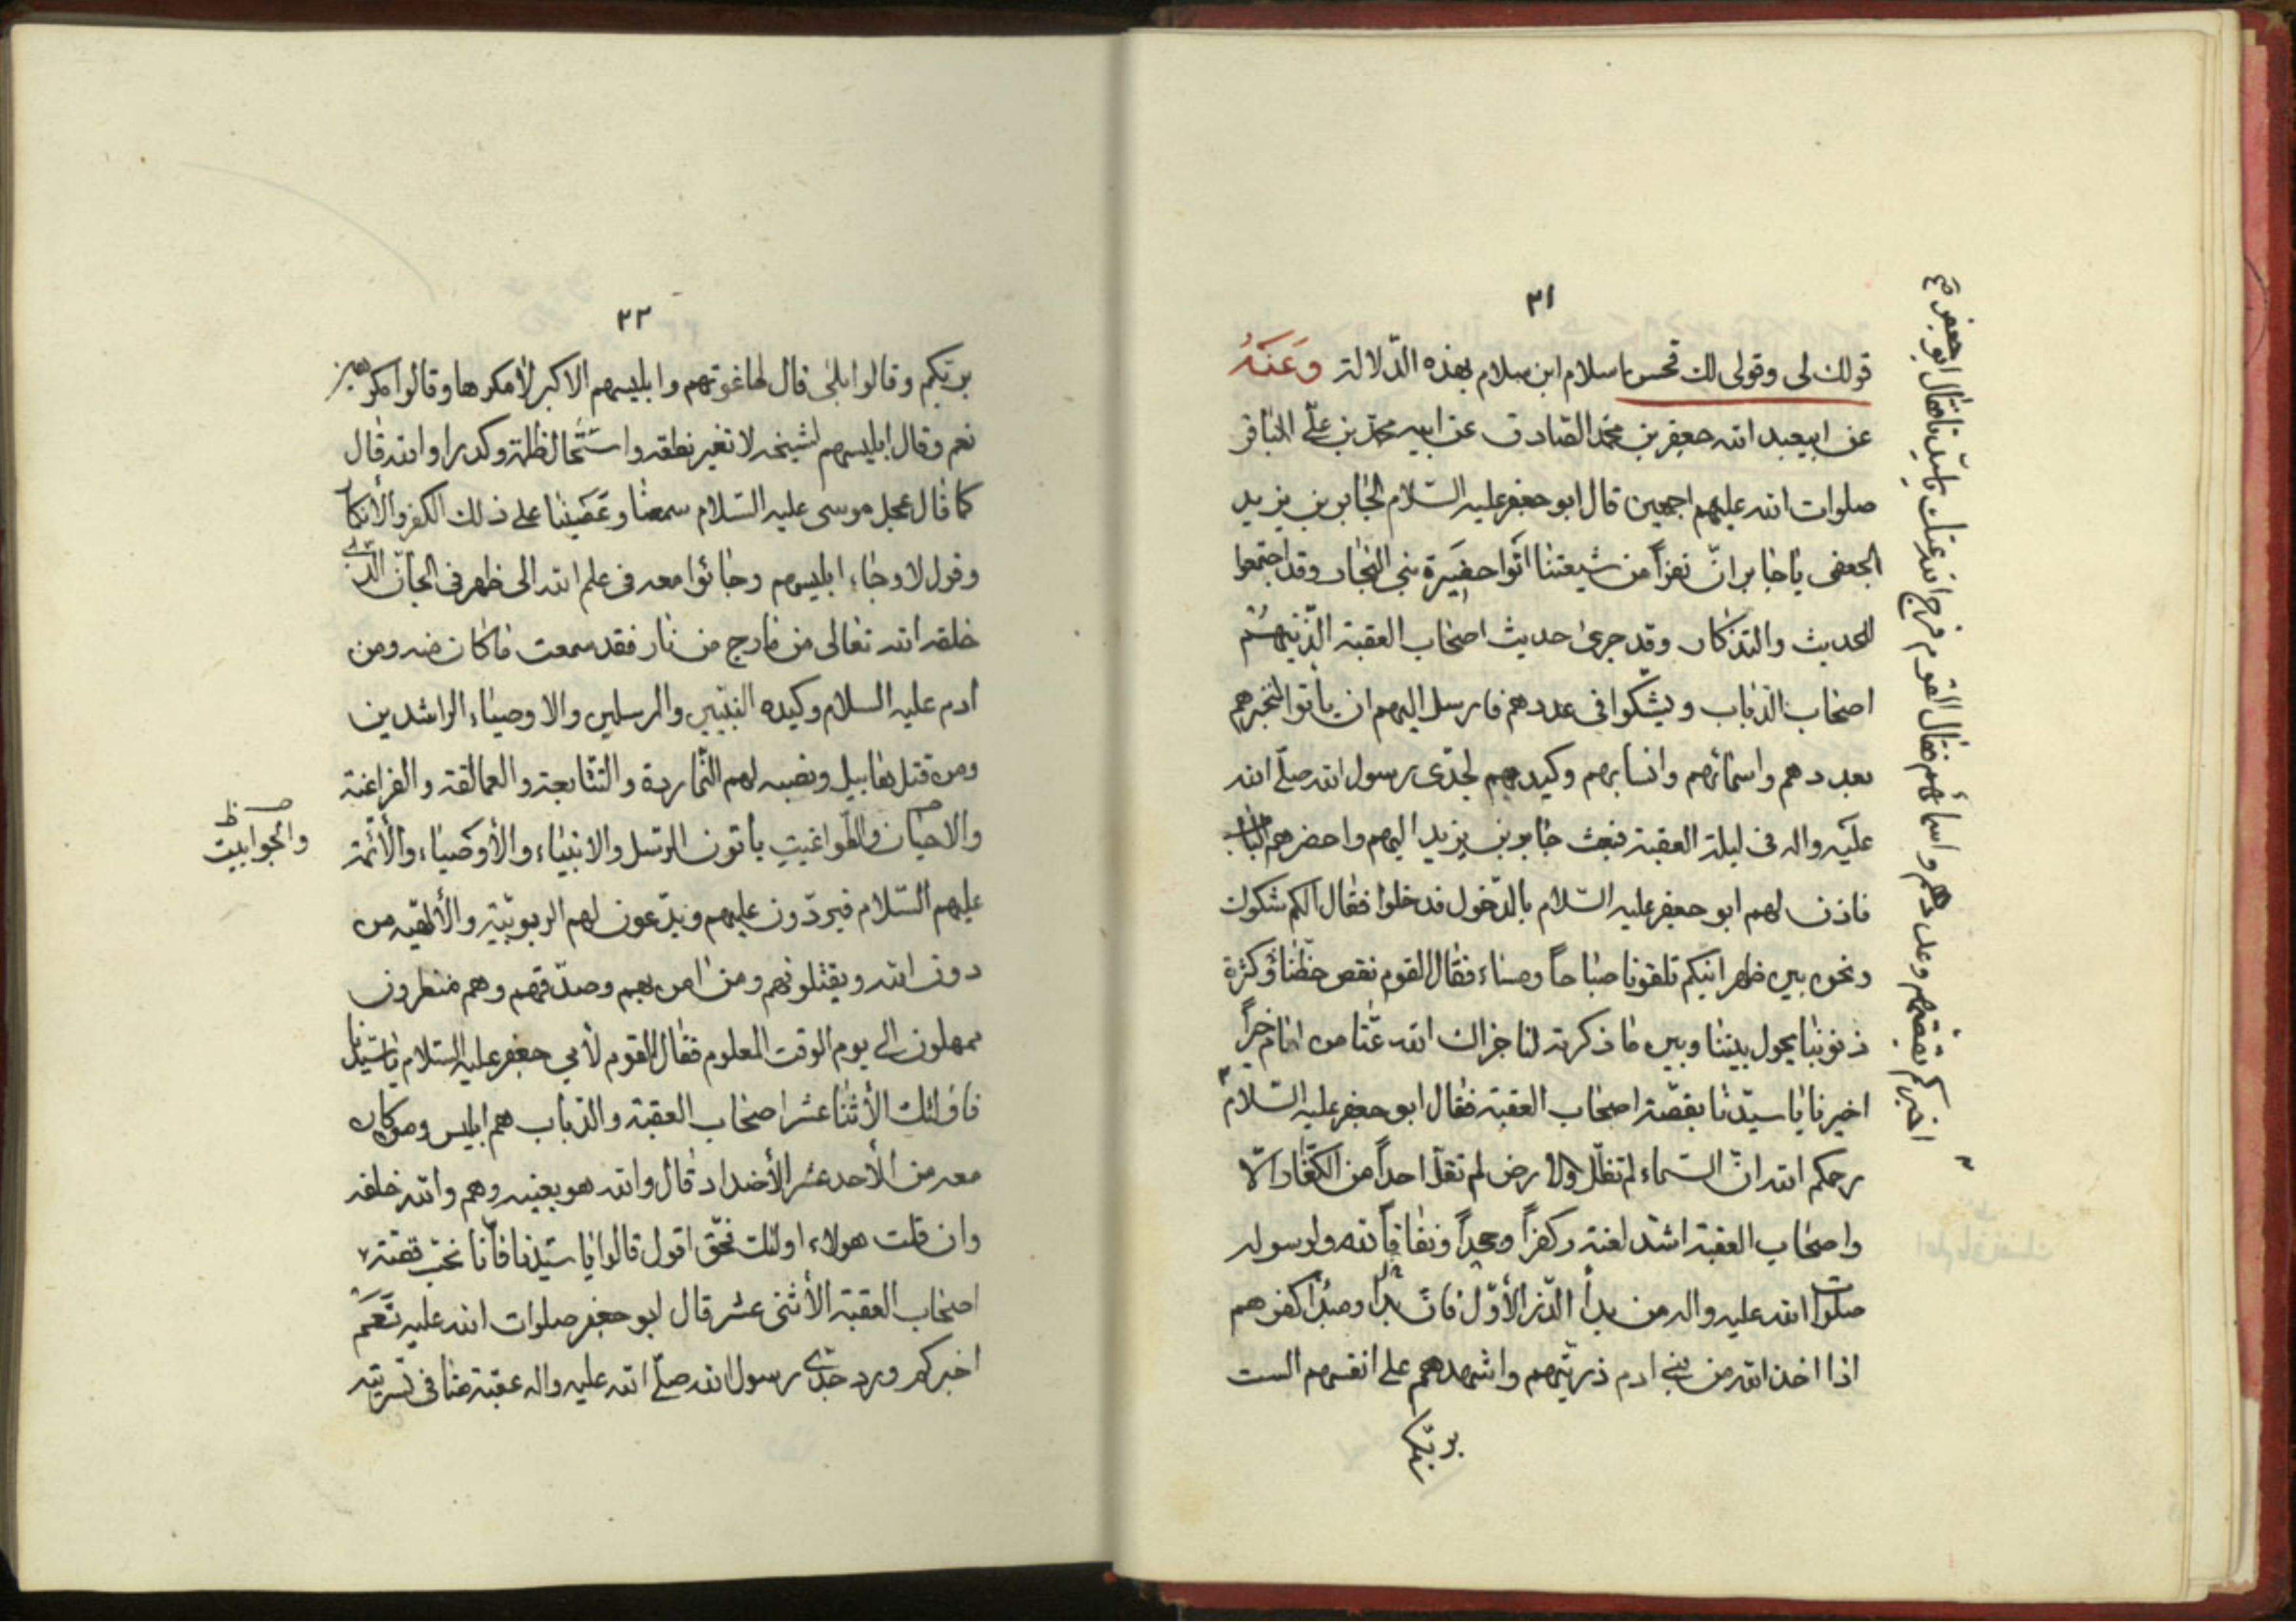 ٢١
قولك لى وقولى لك فحس يا سلام ابن سلام بهذه الدّلالة وَعَنْهُ
عن ابيعبد الله جعفر بن محمّد الصّادق عن ابيه محمّد بن علّى الباقر
صلوات الله عليهم اجمعين قال ابو جعفر عليه السّلام لجابر بن يزيد
الجعفى يا جابر انّ نفراً من شيعتنا اتوا حفيرة بنى النجار وقد اجتمعوا
للحديث والتذكار وقد جرى حديث اصحاب العقبة الّذينهم
اصحاب الذباب ويشكوا فى عددهم فارسل اليهم ان يأتوا لنخبرهم
بعددهم واسمائهم وانسابهم وكيدهم لجدّى رسول الله صلّى الله
عليه واله فى ليلة العقبة فبعث جابر بن يزيد اليهم واحضرهم الباب
فاذن لهم ابو جعفر عليه السّلام بالدّخول فدخلوا فقال الكم شكوك
ونحن بين ظهرانيكم تلقونا صباحاً ومساء فقال القوم نقص حظّنا وكثرة
ذنوبنا يحول بيننا وبين ما ذكرته لنا جزاك الله عنّا من امام خيراً
اخبرنا يا سيّدنا بقصّة اصحاب العقبة فقال ابو جعفر عليه السّلام
رحمكم الله انّ السّماء لم تظلّ والارض لم تقلّ احداً من الكفّار الّا
واصحاب العقبة اشدّ لعنة وكفراً وجحداً ونفاقاً لله ولرسوله
صلوات الله عليه واله من بدأ الذّر الأوّل فانّ بدأ ومبدأ كفرهم
اذا اخذ الله من بنى ادم ذريّتهم واشهدهم على انفسهم الست
بربكم
اخبركم بقصّتهم وعددهم واسمائهم فقال القوم فرج الله عنك يا سيّدنا فقال ابو جعفر ع
٢٢
بربّكم وقالوا بلى قال لها غوتهم وابليسهم الاكبر لأمكرها وقالوا مكرهين
نعم وقال ابليسهم لشيخه لا تغير نطقه واستحال ظلمة وكدرا والله قال
كما قال عجل موسى عليه السّلام سمعنا وعَصَينا على ذلك الكفر والأنكار
وقول لا وجاء ابليسهم وجائوا معه فى علم الله الى ظهر فى الجانّ الّذى
خلقه الله تعالى من مارج من نار فقد سمعت ما كان منه ومن
ادم عليه السلام وكيده النبّيين والمرسلين والاوصياء الراشدين
ومن قتل هابيل ونصبه لهم النّماردة والتّبابعة والعمالقة والفراعنة
والطّواغيت يأتون الرّسل والانبياء والأوصياء والأئمّة
والجوابيت
عليهم السّلام فيردّون عليهم ويدّعون لهم الربوبيّة والألهيّه من
دون الله ويقتلونهم ومن امن بهم وصدّقهم وهم منظرون
ممهلون الى يوم الوقت المعلوم فقال القوم لأبي جعفر عليه السّلام يا سيّدنا
فاولئك الأثنا عشر اصحاب العقبة والذباب هم ابليس ومن كان
معه من الأحد عشر الأضداد قال والله هو بعينه وهم والله خلفه
وان قلت هولاء اولئك فحقّ اقول قالوا يا سيّدنا فأنّا نحب قصّة
اصحاب العقبة الأثنى عشر قال ابو جعفر صلوات الله عليه نَعَم
اخبركم ورد جدّى رسول الله صلّى الله عليه واله عقبة